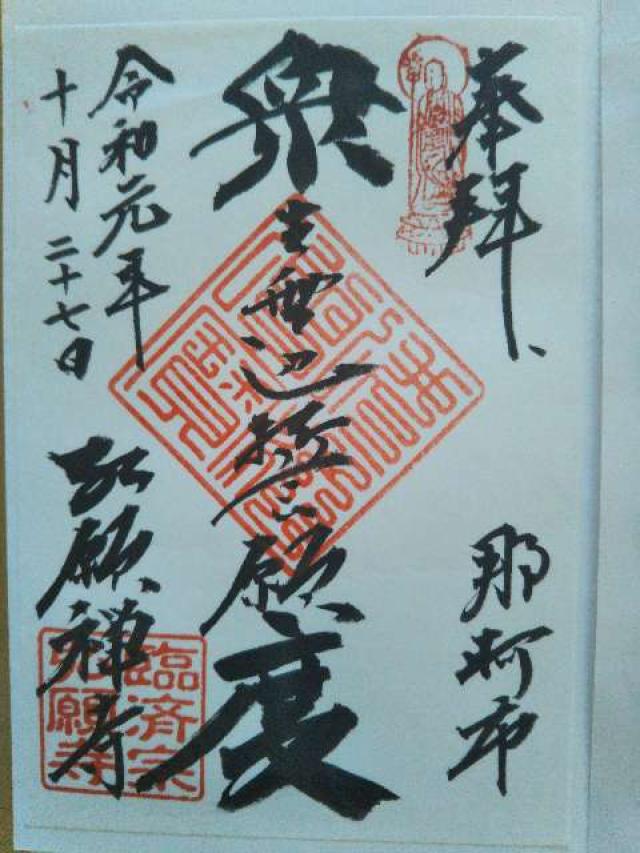 奉拝、
那珂市
衆生無辺誓願度
令和元年
十月二十七日
弘願禅寺
臨済宗
弘願寺